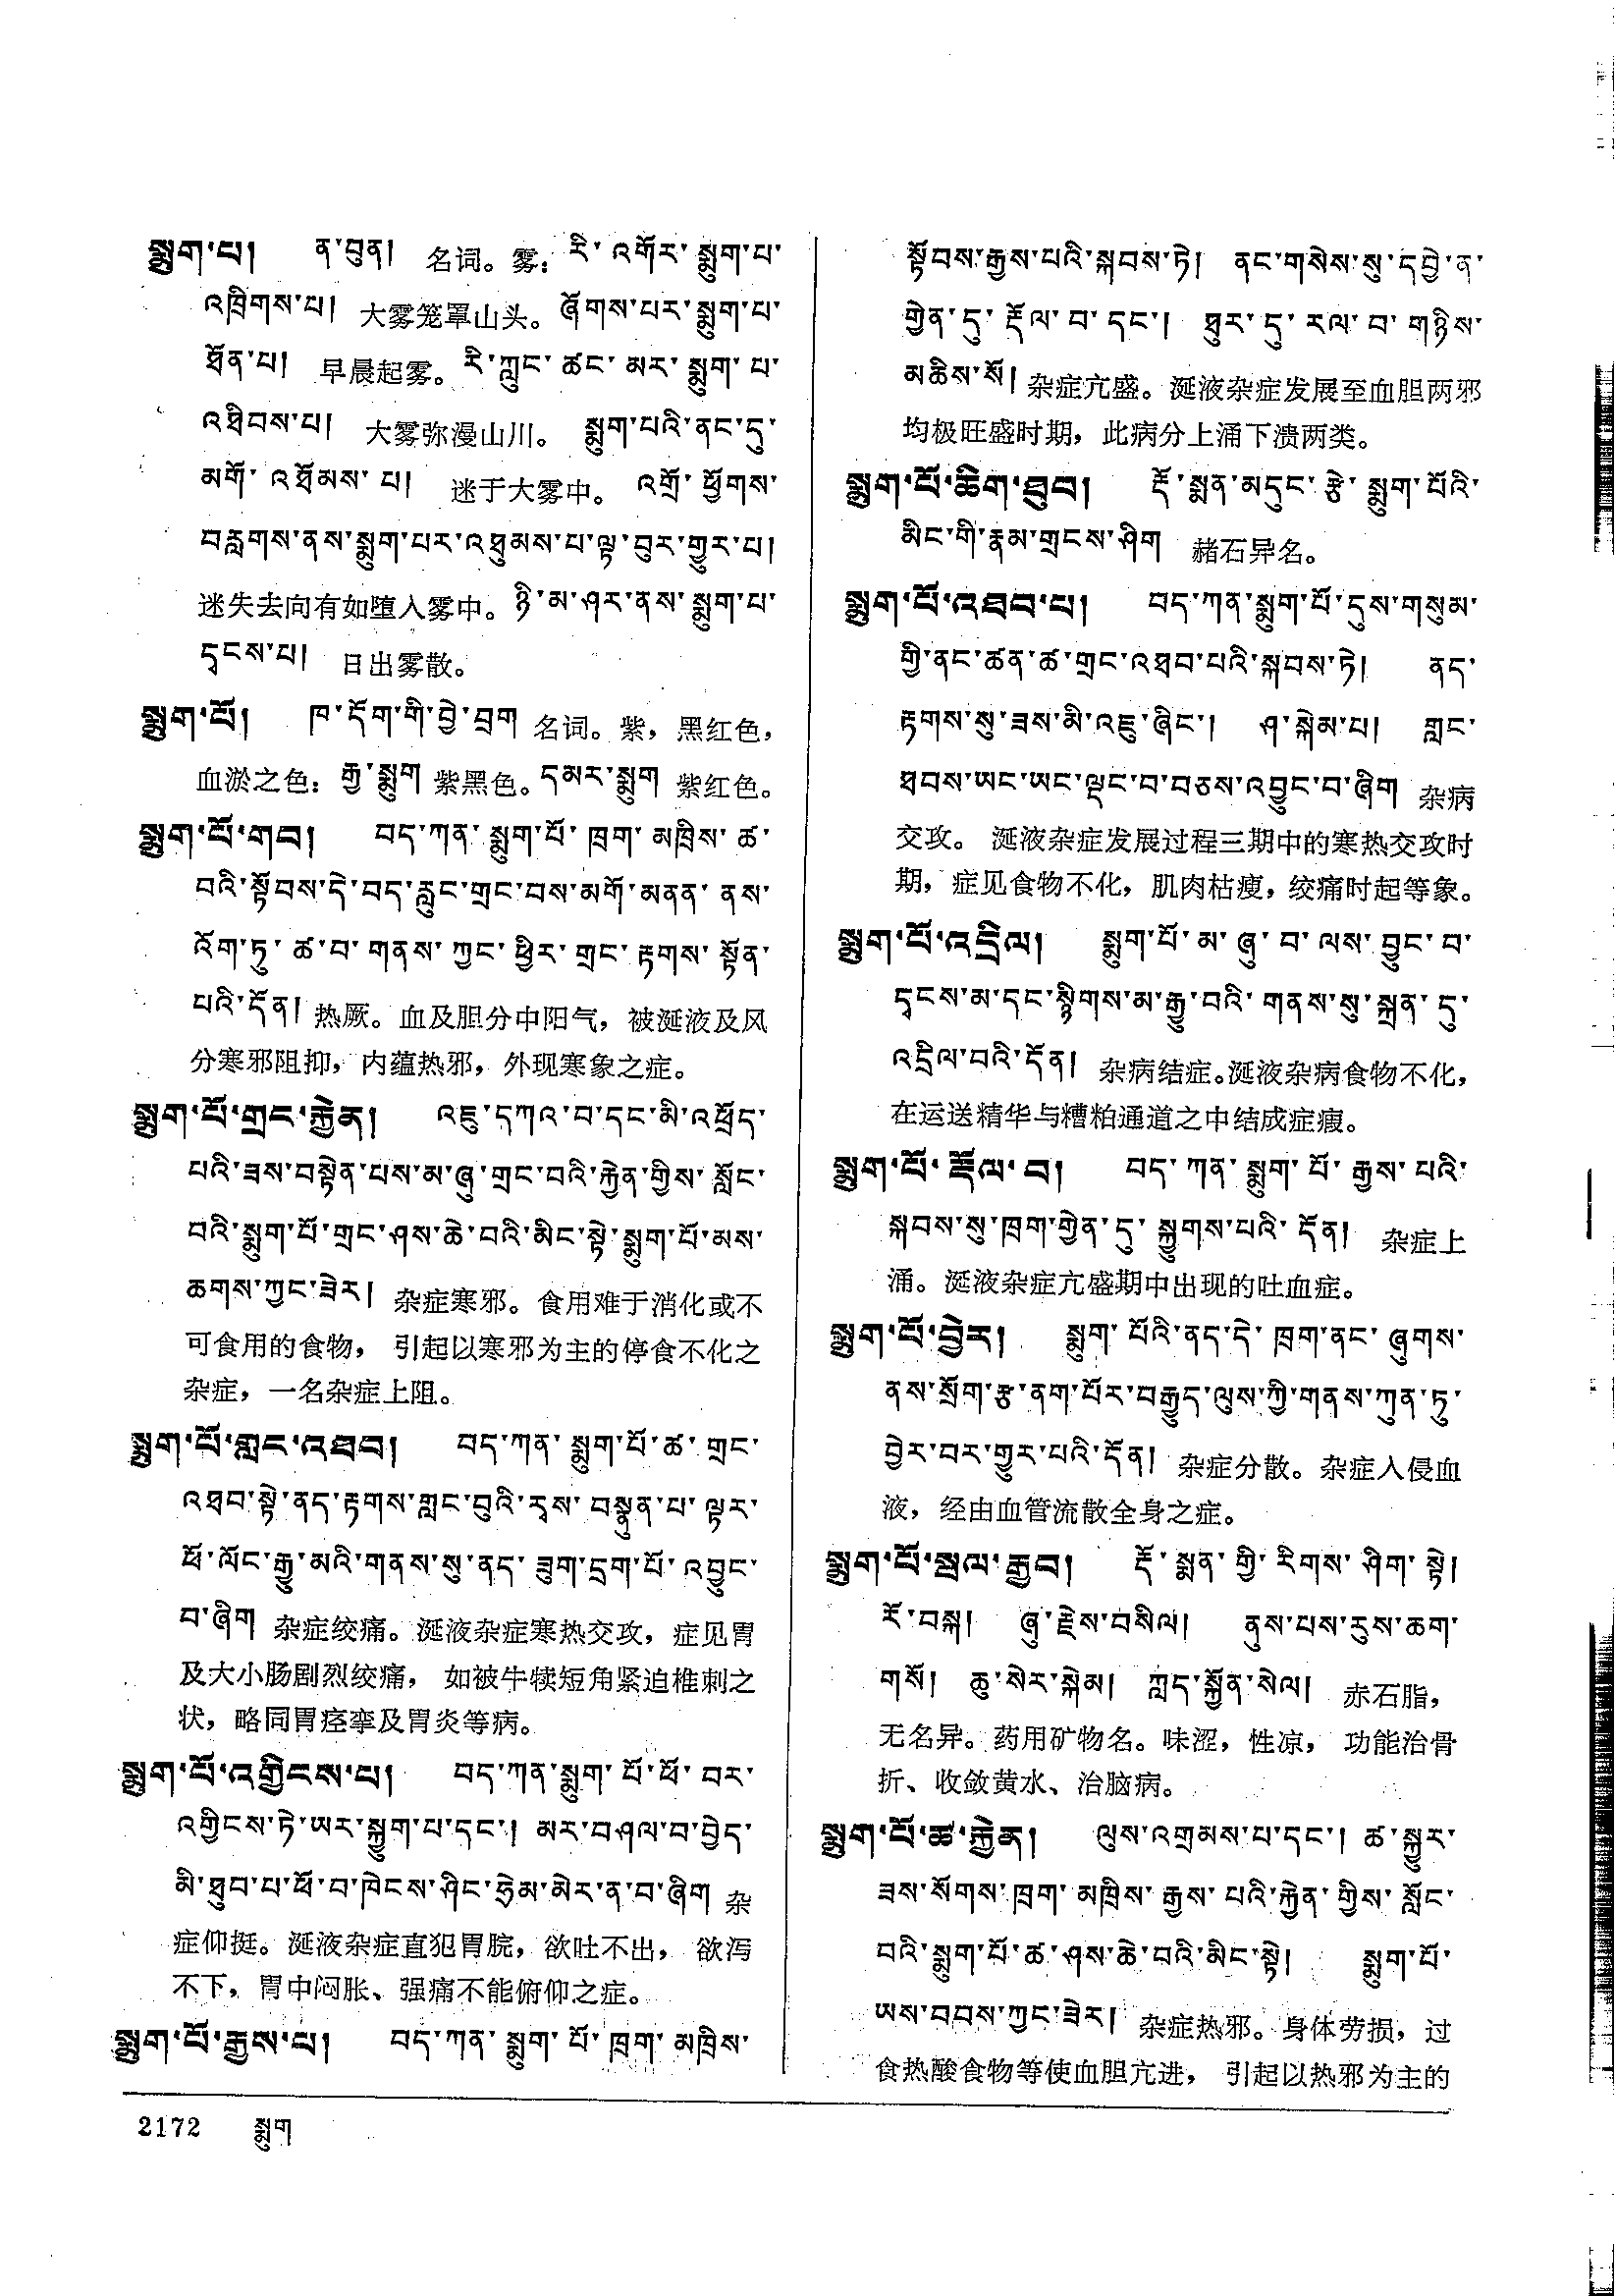 སྨུག་པ། ན་བུན། 名词。雾：རི་འགོར་སྨུག་པ་
འཁྲིགས་པ། 大雾笼罩山头。ཞོགས་པར་སྨུག་པ་
ཐོན་པ། 早晨起雾。རི་ཀླུང་ཚང་མར་སྨུག་པ་
འཐིབས་པ། 大雾弥漫山川。 སྨུག་པའི་ནང་དུ་
མགོ་འཐོམས་པ། 迷于大雾中。 འགྲོ་ཕྱོགས་
བརླགས་ནས་སྨུག་པར་འཐུམས་པ་ལྟ་བུར་གྱུར་པ།
迷失去向有如堕入雾中。ཉི་མ་ཤར་ནས་སྨུག་པ་
དྭངས་པ། 日出雾散。
སྨུག་པོ། ཁ་དོག་གི་བྱེ་བྲག 名词。紫，黑红色，
血淤之色：རྒྱ་སྨུག 紫黑色。དམར་སྨུག 紫红色。
སྨུག་པོ་གབ། བད་ཀན་སྨུག་པོ་ཁྲག་མཁྲིས་ཚ་
བའི་སྟོབས་དེ་བད་རླུང་གྲང་བས་མགོ་མནན་ནས་
འོག་ཏུ་ཚ་བ་གནས་ཀྱང་ཕྱིར་གྲང་རྟགས་སྟོན་
པའི་དོན། 热厥。血及胆分中阳气，被涎液及风
分寒邪阻抑，内蕴热邪，外现寒象之症。
སྨུག་པོ་གྲང་རྐྱེན། འཇུ་དཀའ་བ་དང་མི་འཕྲོད་
པའི་ཟས་བསྟེན་པས་མ་ཞུ་གྲང་བའི་རྐྱེན་གྱིས་སློང་
བའི་སྨུག་པོ་གྲང་ཤས་ཆེ་བའི་མིང་སྟེ་སྨུག་པོ་མས་
ཆགས་ཀྱང་ཟེར། 杂症寒邪。食用难于消化或不
可食用的食物， 引起以寒邪为主的停食不化之
杂症，一名杂症上阻。
སྨུག་པོ་གླང་འཐབ། བད་ཀན་སྨུག་པོ་ཚ་གྲང་
འཐབ་སྟེ་ནད་རྟགས་གླང་བུའི་རྭས་བསྣུན་པ་ལྟར་
ཕོ་ལོང་རྒྱུ་མའི་གནས་སུ་ནད་ཟུག་དྲག་པོ་འབྱུང་
བ་ཞིག 杂症绞痛。涎液杂症寒热交攻，症见胃
及大小肠剧烈绞痛， 如被牛犊短角紧迫椎刺之
状，略同胃痉挛及胃炎等病。
སྨུག་པོ་འགྱིངས་པ། བད་ཀན་སྨུག་པོ་ཕོ་བར་
འགྱིངས་ཏེ་ཡར་སྐྱུག་པ་དང་། མར་བཤལ་བ་བྱེད་
མི་ཐུབ་པ་ཕོ་བ་ཁེངས་ཤིང་ཧྲེམ་མེར་ན་བ་ཞིག 杂
症仰挺。涎液杂症直犯胃脘，欲吐不出， 欲泻
不下，胃中闷胀、强痛不能俯仰之症。
སྨུག་པོ་རྒྱས་པ། བད་ཀན་སྨུག་པོ་ཁྲག་མཁྲིས་
སྟོབས་རྒྱས་པའི་སྐབས་ཏེ། ནང་གསེས་སུ་དབྱེ་ན་
གྱེན་དུ་རྡོལ་བ་དང་། ཐུར་དུ་རལ་བ་གཉིས་
མཆིས་སོ། 杂症亢盛。涎液杂症发展至血胆两邪
均极旺盛时期，此病分上涌下溃两类。
སྨུག་པོ་ཆིག་ཐུབ། རྡོ་སྨན་མདུང་རྩེ་སྨུག་པོའི་
མིང་གི་རྣམ་གྲངས་ཤིག 赭石异名。
སྨུག་པོ་འཐབ་པ། བད་ཀན་སྨུག་པོ་དུས་གསུམ་
གྱི་ནང་ཚན་ཚ་གྲང་འཐབ་པའི་སྐབས་ཏེ། ནད་
རྟགས་སུ་ཟས་མི་འཇུ་ཞིང་། ཤ་སྐེམ་པ། གླང་
ཐབས་ཡང་ཡང་ལྡང་བ་བཅས་འབྱུང་བ་ཞིག 杂病
交攻。 涎液杂症发展过程三期中的寒热交攻时
期，症见食物不化，肌肉枯瘦，绞痛时起等象。
སྨུག་པོ་འདྲིལ། སྨུག་པོ་མ་ཞུ་བ་ལས་བྱུང་བ་
དྭངས་མ་དང་སྙིགས་མ་རྒྱུ་བའི་གནས་སུ་སྐྲན་དུ་
འདྲིལ་བའི་དོན། 杂病结症。涎液杂病食物不化，
在运送精华与糟粕通道之中结成症瘕。
སྨུག་པོ་རྡོལ་བ། བད་ཀན་སྨུག་པོ་རྒྱས་པའི་
སྐབས་སུ་ཁྲག་གྱེན་དུ་སྐྱུགས་པའི་དོན། 杂症上
涌。涎液杂症亢盛期中出现的吐血症。
སྨུག་པོ་བྱེར། སྨུག་པོའི་ནད་དེ་ཁྲག་ནང་ཞུགས་
ནས་སྲོག་རྩ་ནག་པོར་བརྒྱུད་ལུས་ཀྱི་གནས་ཀུན་ཏུ་
བྱེར་བར་གྱུར་པའི་དོན། 杂症分散。杂症入侵血
液，经由血管流散全身之症。
སྨུག་པོ་སྦལ་རྒྱབ། རྡོ་སྨན་གྱི་རིགས་ཤིག་སྟེ།
རོ་བསྐ། ཞུ་རྗེས་བསིལ། ནུས་པས་རུས་ཆག་
གསོ། ཆུ་སེར་སྐེམ། ཀླད་སྐྱོན་སེལ། 赤石脂，
无名异。药用矿物名。味涩，性凉， 功能治骨
折、收敛黄水、治脑病。
སྨུག་པོ་ཚ་རྐྱེན། ལུས་འགྲམས་པ་དང་། ཚ་སྐྱུར་
ཟས་སོགས་ཁྲག་མཁྲིས་རྒྱས་པའི་རྐྱེན་གྱིས་སློང་
བའི་སྨུག་པོ་ཚ་ཤས་ཆེ་བའི་མིང་སྟེ། སྨུག་པོ་
ཡས་བབས་ཀྱང་ཟེར། 杂症热邪。身体劳损，过
食热酸食物等使血胆亢进， 引起以热邪为主的
2172 སྨུག